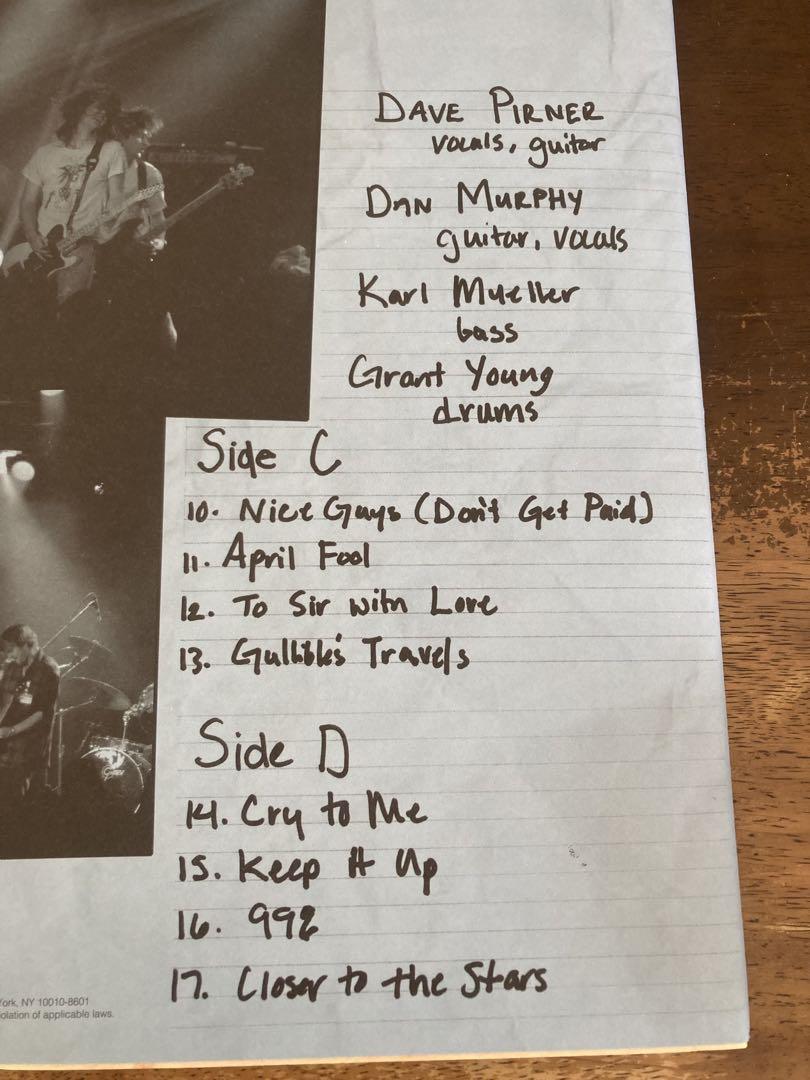 DAVE PIRNER
vocals, guitar
DAN MURPHY
guitar, vocals
Karl Mueller
bass
Grant Young
drums
Side C
10. Nice Guys (Don't Get Paid)
11. April Fool
12. To Sir with Love
13. Gullible's Travels
Side D
14. Cry to Me
15. Keep It Up
16. 99%
17. Closer to the Stars
York, NY 10010-8601
olation of applicable laws.